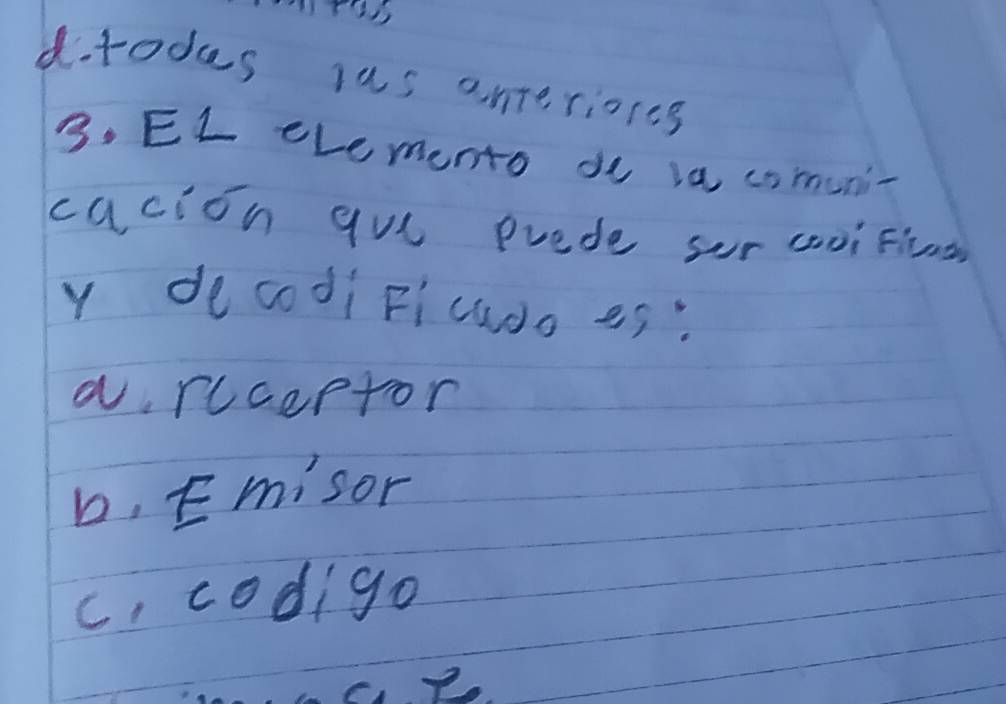 d. todas las anteriores
3. EL eLemento de la comuni-
cación que puede ser
y decodiFicado es:
a. receptor
b. Emisor
c. codigo